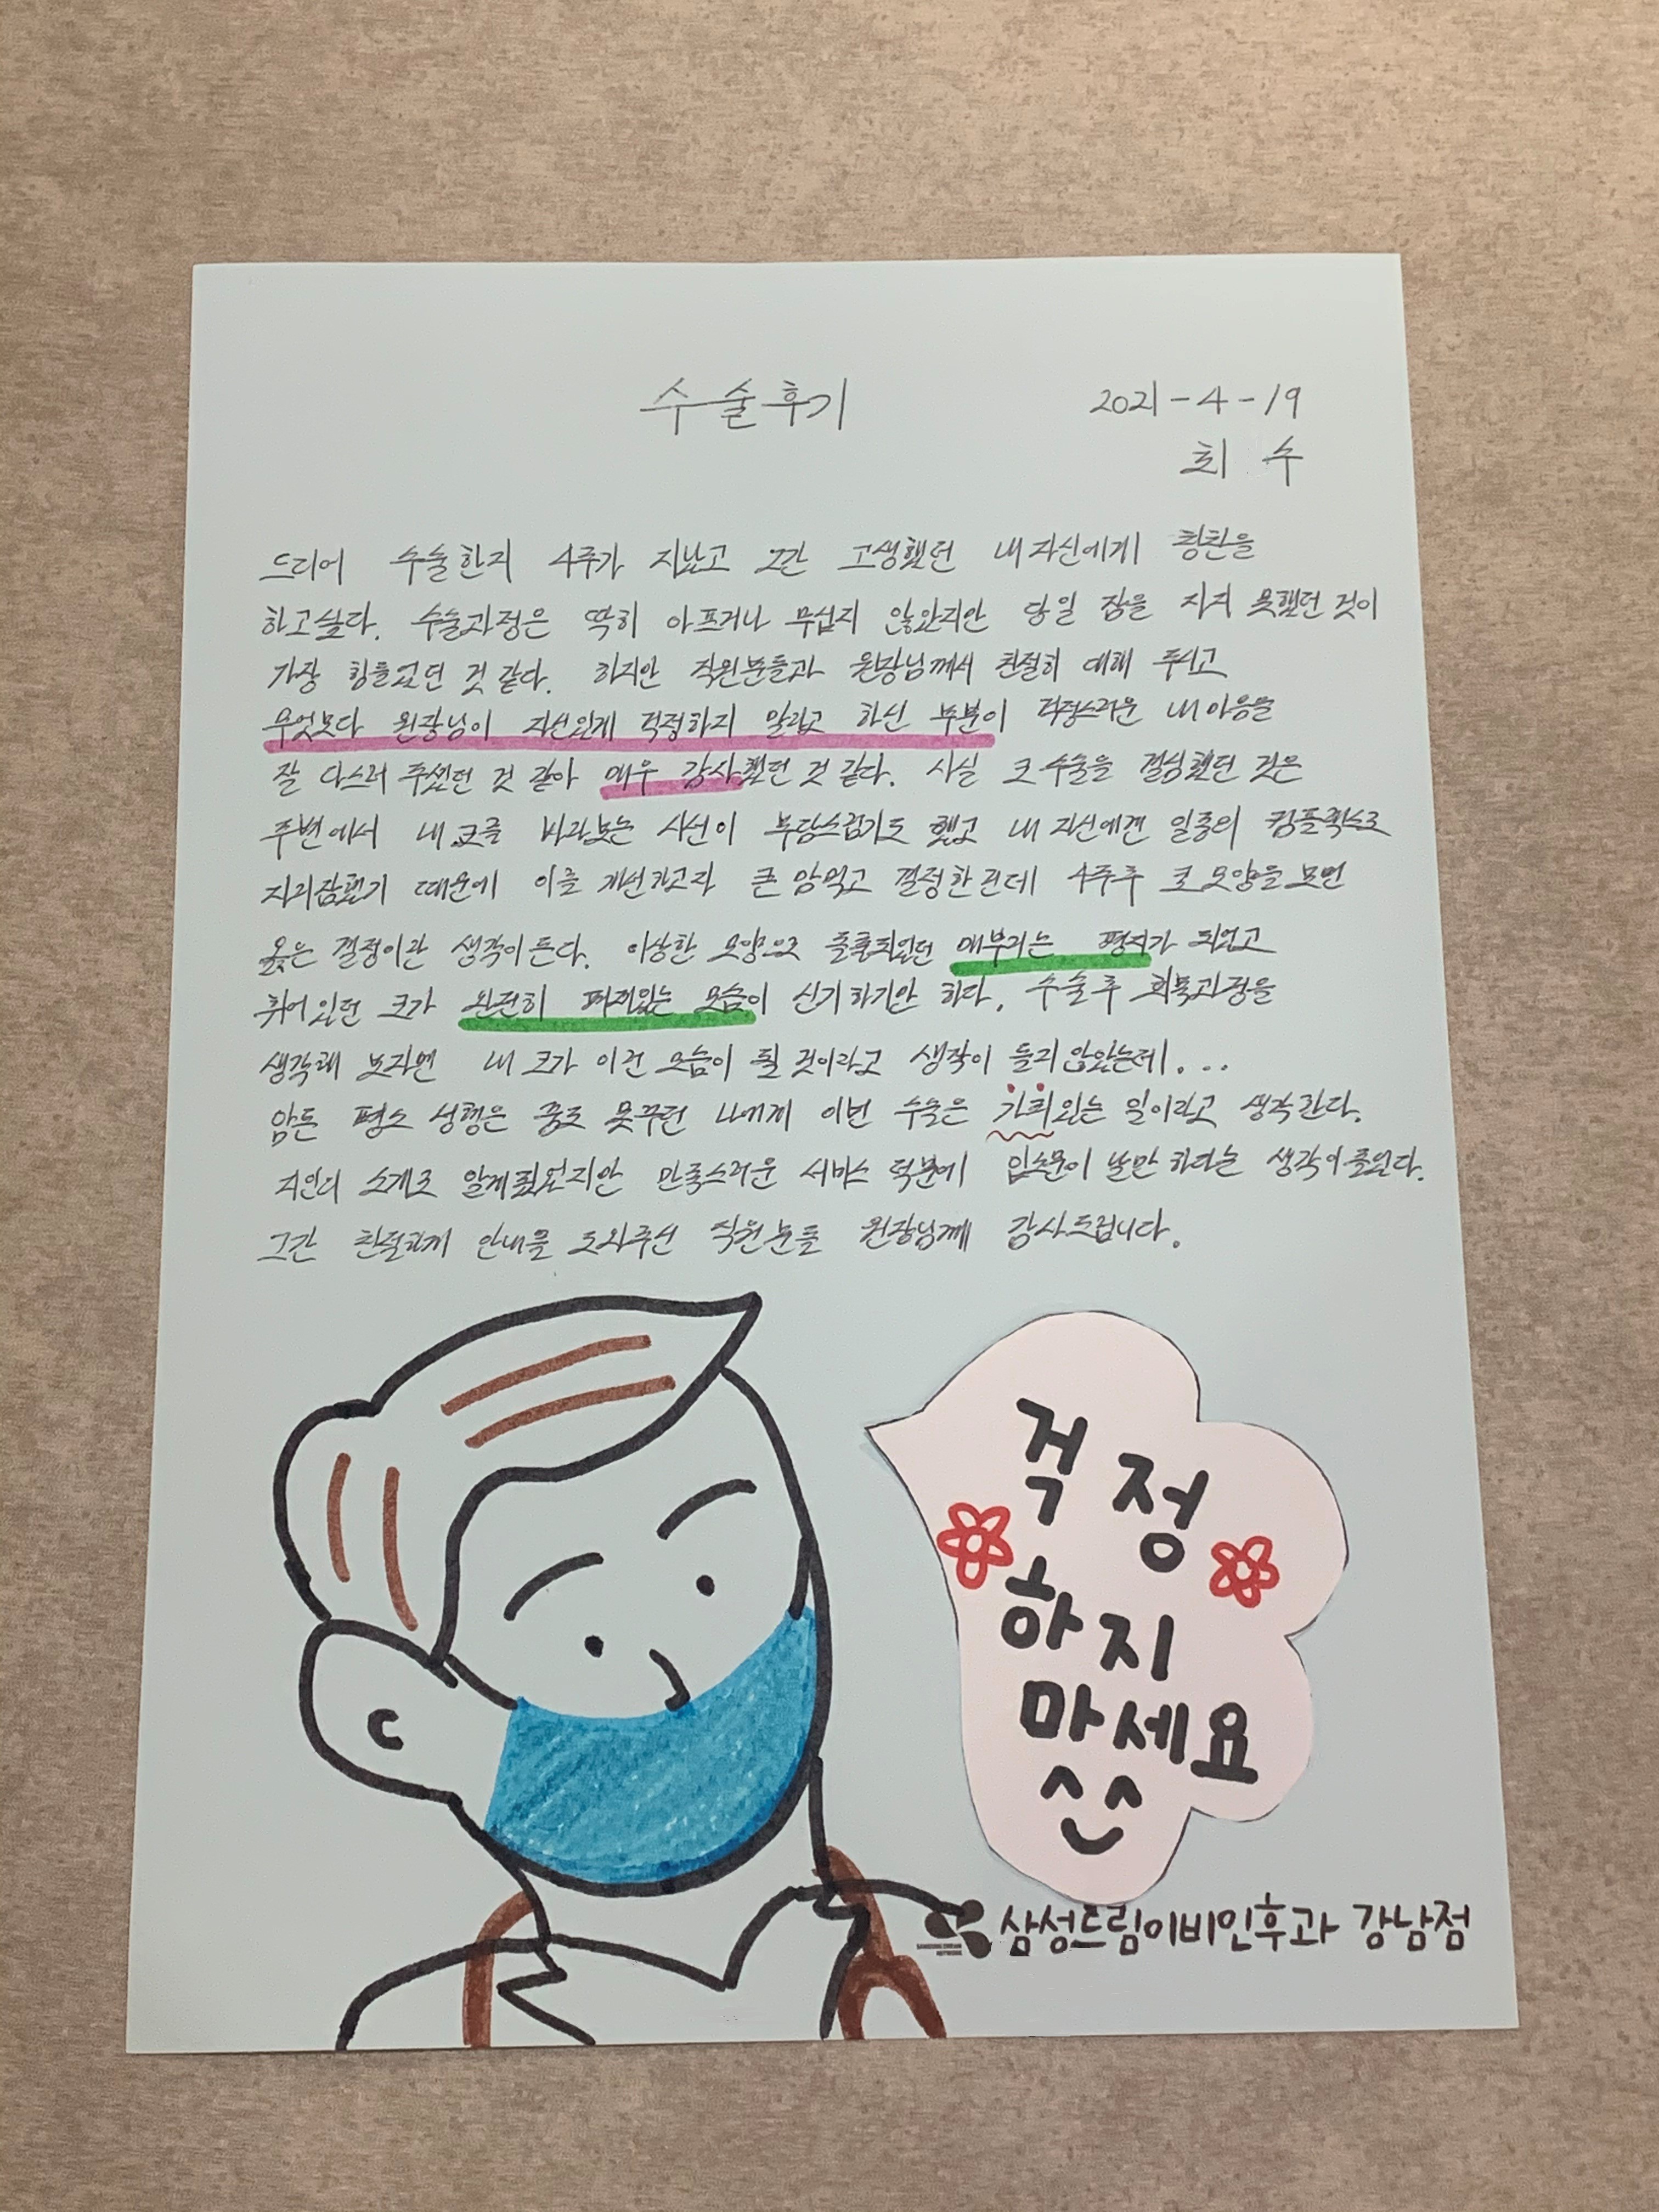 수술후기
2021-4-19
최 수
드디어 수술한지 4주가 지났고 그간 고생했던 내 자신에게 칭찬을
하고싶다. 수술과정은 딱히 아프거나 무섭지 않았지만 당일 잠을 자지 못했던 것이
가장 힘들었던 것 같다. 하지만 직원분들과 원장님께서 친절히 대해 주시고
무엇보다 원장님이 자신있게 걱정하지 말라고 하신 부분이 걱정스러운 내 마음을
잘 다스려 주셨던 것 같아 매우 감사했던 것 같다. 사실 코 수술을 결심했던 것은
주변에서 내 코를 바라보는 시선이 부담스럽기도 했고 내 자신에겐 일종의 컴플렉스로
자리잡혔기 때문에 이를 개선하고자 큰 맘먹고 결정한건데 4주후 코 모양을 보면
옳은 결정이란 생각이 든다. 이상한 모양으로 돌출되있던 매부리는 평지가 되었고
휘어있던 코가 완전히 펴져있는 모습이 신기하기만 하다. 수술후 회복과정을
생각해 보자면 내 코가 이런 모습이 될 것이라고 생각이 들지 않았는데...
암튼 평소 성형은 꿈도 못꾸던 나에게 이번 수술은 가치있는 일이라고 생각한다.
지인의 소개로 알게됬었지만 만족스러운 서비스 덕분에 입소문이 날만 하다는 생각이 들었다.
그간 친절하게 안내를 도와주신 직원분들 원장님께 감사드립니다.
걱정
하지
마세요
삼성드림이비인후과 강남점